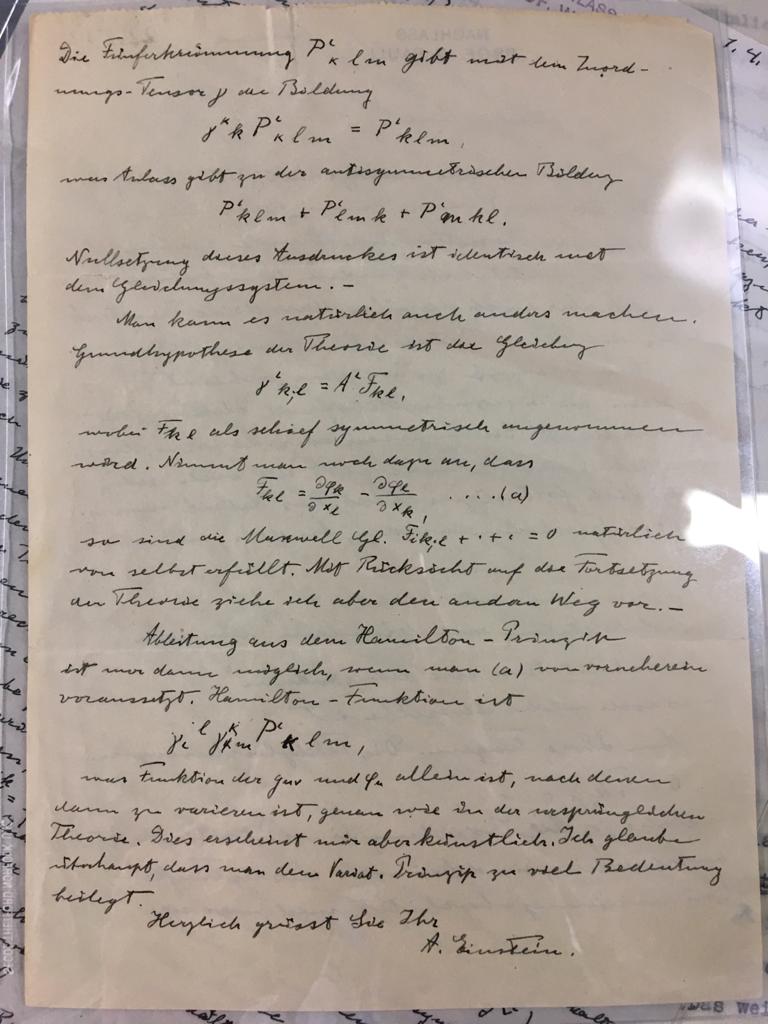 Die Fünferkrümmung P^ι_κ l m gibt mit dem Zuord-
nungs-Tensor γ die Bildung
γ^κ_k P^ι_κ l m = P^ι_k l m ,
was Anlass gibt zu der antisymmetrischen Bildung
P^ι_k l m + P^ι_l m k + P^ι_m k l .
Nullsetzung dieses Ausdruckes ist identisch mit
dem Gleichungssystem. –
Man kann es natürlich auch anders machen.
Grundhypothese der Theorie ist die Gleichung
γ^ι_k;l = A^ι F_kl ,
wobei F_kl als schief symmetrisch angenommen
wird. Nimmt man noch dazu an, dass
F_kl = ∂φ_k/∂x_l − ∂φ_l/∂x_k , . . . . (a)
so sind die Maxwell Gl. F_ik;l + · + · = 0 natürlich
von selbst erfüllt. Mit Rücksicht auf die Fortsetzung
der Theorie ziehe ich aber den andern Weg vor. –
Ableitung aus dem Hamilton-Prinzip
ist nur dann möglich, wenn man (a) von vorneherein
voraussetzt. Hamilton-Funktion ist
γ_ι^l γ^κm P^ι_κ l m ,
was Funktion der g_μν und φ_μ allein ist, nach denen
dann zu variieren ist, genau wie in der ursprünglichen
Theorie. Dies erscheint mir aber künstlich. Ich glaube
überhaupt, dass man dem Variat. Prinzip zu viel Bedeutung
beilegt.
Herzlich grüsst Sie Ihr
A. Einstein.
NACHLASS
1.4.
Das Wei